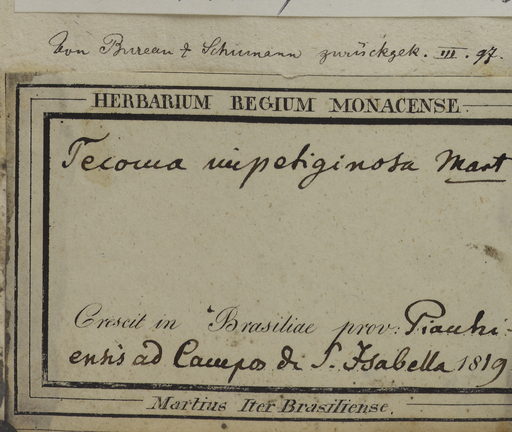 Von Bureau & Schumann zurückgek. III. 97.
HERBARIUM REGIUM MONACENSE.
Tecoma impetiginosa Mart
Crescit in Brasiliae prov: Piauhi-
ensis ad Campos de S. Isabella 1819
Martius Iter Brasiliense.